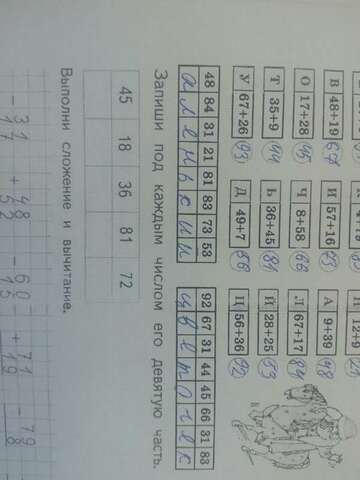 12+9
В 48+19 67 И 57+16 73 А 9+39 48
О 17+28 45 Ч 8+58 66 Л 67+17 84
Т 35+9 44 Ь 36+45 81 Й 28+25 53
У 67+26 93 Д 49+7 56 Ц 56+36 92
48 84 31 21 81 83 73 53 92 67 31 44 45 66 31 83
а л е н ь к и й ц в е т о ч е к
Запиши под каждым числом его девятую часть.
45 18 36 81 72
Выполни сложение и вычитание.
31 48 60 71 79
- + - + -
17 52 15 19 8